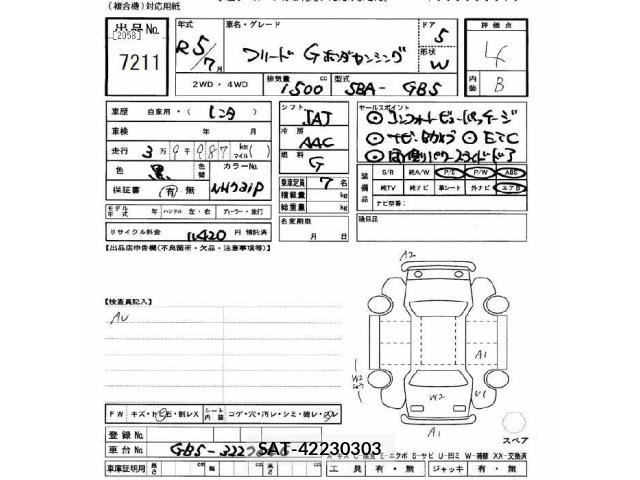 (複合機)対応用紙
出品No. 年式 車名・グレード ドア 評価点
[2058] R5/7月 フリード G ホンダセンシング 5 4
7211 形状 W
2WD・4WD 排気量 1500 cc 型式 5BA- GB5 内装 B
車歴 自家用・(レンタ) シフト IAT セールスポイント
車検 年 月 冷房 AAC ◎コンフォートビューパッケージ
走行 3万9千087 km(マイル) 燃料 G ◎ナビ・Bカメラ ◎ETC
色 黒 色替 カラーNo. ◎両側パワースライドドア
保証書 有・無 NH731P 乗車定員 7名
積載量 kg
総重量 kg
装備品 S/R 純A/W P/S P/W ABS
純TV 純ナビ 革シート 外ナビ エアB
ナビ型番:
モデル年式 年 ハンドル 左・右 ディーラー・並行 名変期限 月 日 後日品
リサイクル料金 11420 円 預託済
【出品店申告欄(不良箇所・欠品・注意事項等)】
【検査員記入】
AU
A2
A1
W2
W2
U1
A1
スペア
FW キズ・トビ石・割レX シート内装 コゲ・穴・汚レ・シミ・破レ・スレ
登録No.
車台No. GB5-322
SAT-42230303
A-キズ E-エクボ S-サビ U-凹ミ W-補修 XX-交換済
車庫証明用 長さ cm 幅 cm 高さ cm 工具 有・無 ジャッキ 有・無